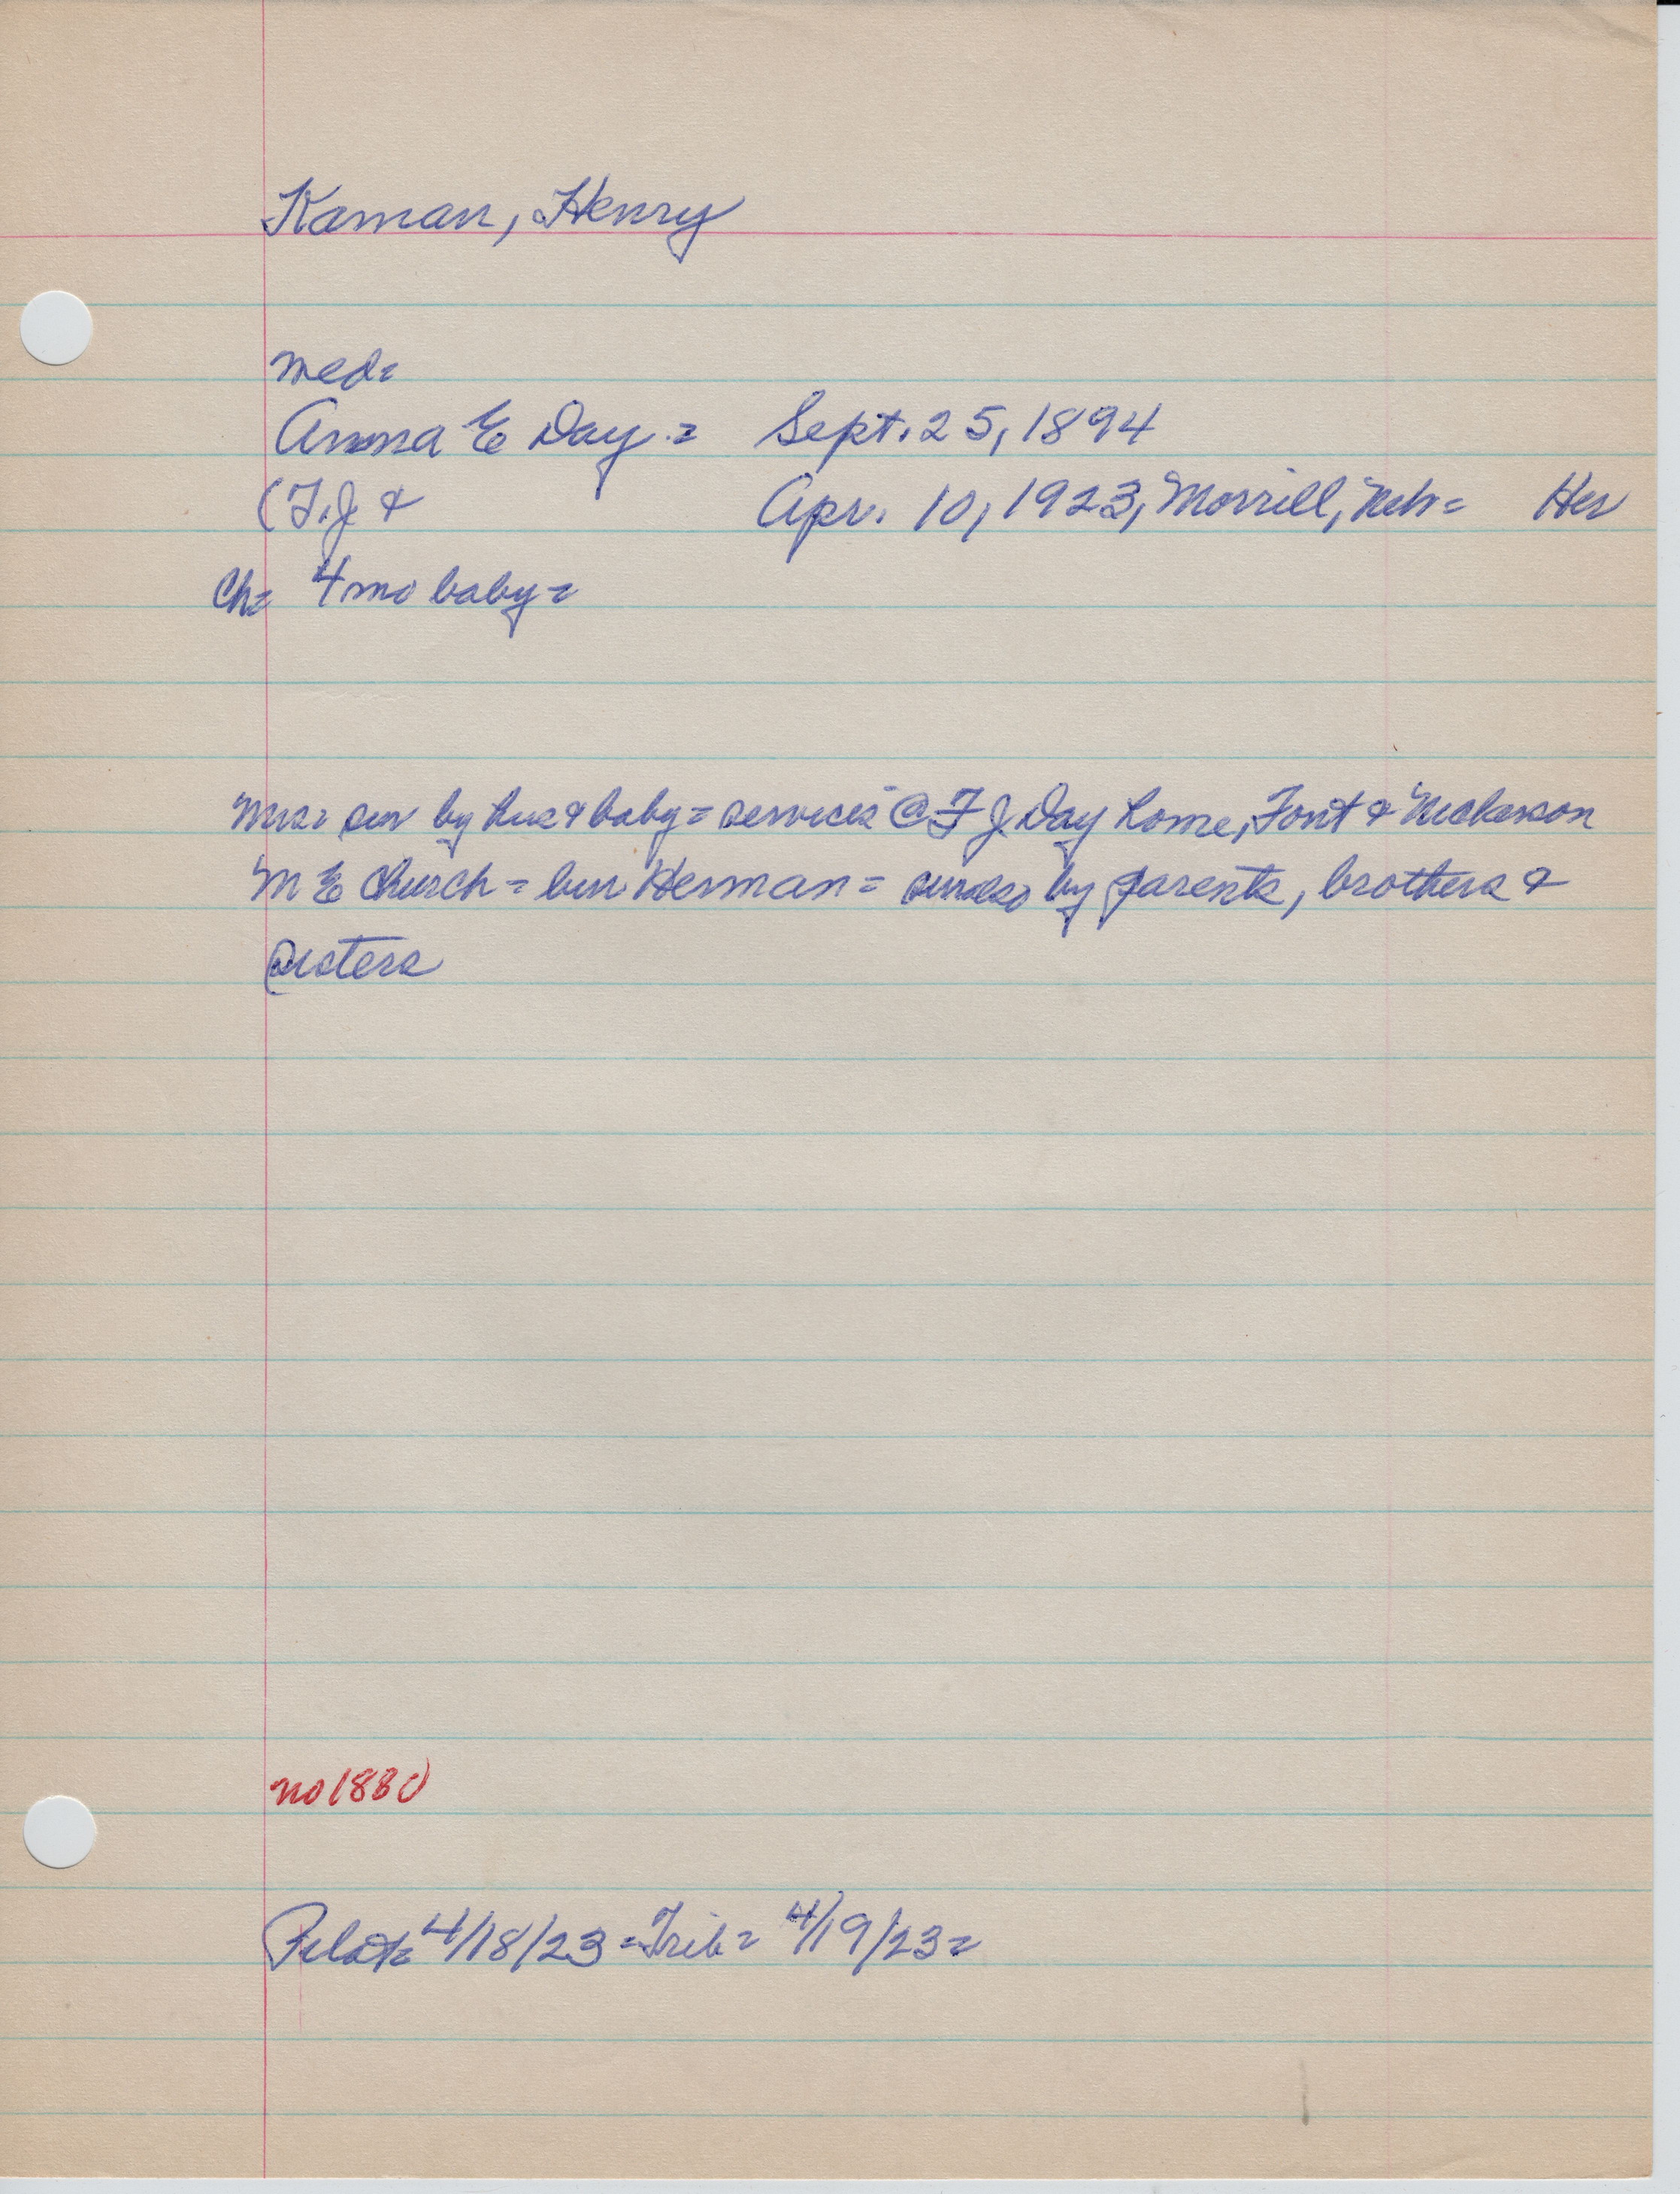 Kaman, Henry
med=
Anna E Day = Sept. 25, 1894
(F.J & Apr. 10, 1923, Morrill, Neb= Her
Ch= 4 mo baby=
Mrs= sur by hus & baby = services @ F J Day home, Font & Nickerson
M E Church = bur Herman = sur also by parents, brothers &
sisters
no 1880
Pilot= 4/18/23 = Trib= 4/19/23=